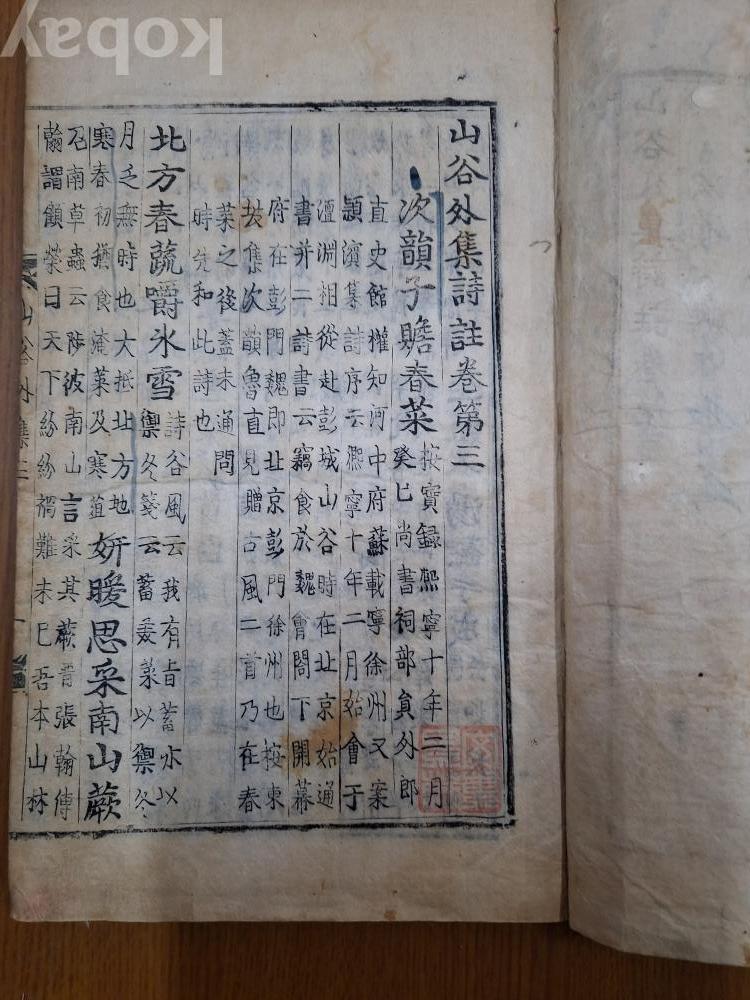 山谷外集詩註卷第三
次韻子贍春菜
按實錄熙寧十年二月
癸巳尚書祠部員外郎
直史館權知河中府蘇載寧徐州又案
潁濱集詩序云熙寧十年二月始會于
澶淵相從赴彭城山谷時在北京始通
書并二詩書云竊食於魏會閤下開幕
府在彭門魏即北京彭門徐州也按東
坡集次韻魯直見贈古風二首乃在春
菜之後蓋未通問
時先和此詩也
北方春蔬嚼氷雪
詩谷風云我有旨蓄亦以
禦冬箋云蓄委菜以禦冬
月乏無時也大抵北方地
寒春初猶食淹菜及寒菹
妍暖思采南山蕨
召南草蟲云陟彼南山言采其蕨晉張翰傳
翰謂顧榮曰天下紛紛禍難未已吾本山林
山谷外集三
kobay